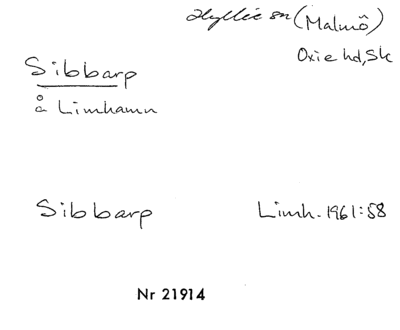 Hyllie sn (Malmö)
Oxie hd, Sk
Sibbarp
å Limhamn
Sibbarp
Limh. 1961:58
Nr 21914